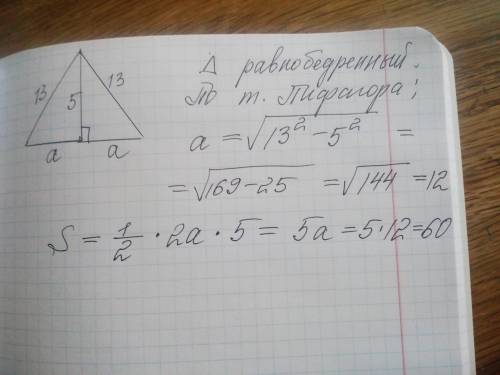 13 13
5
a a
Δ равнобедренный.
По т. Пифагора:
a = √13² - 5² =
= √169-25 = √144 = 12
S = 1/2 · 2a · 5 = 5a = 5·12 = 60